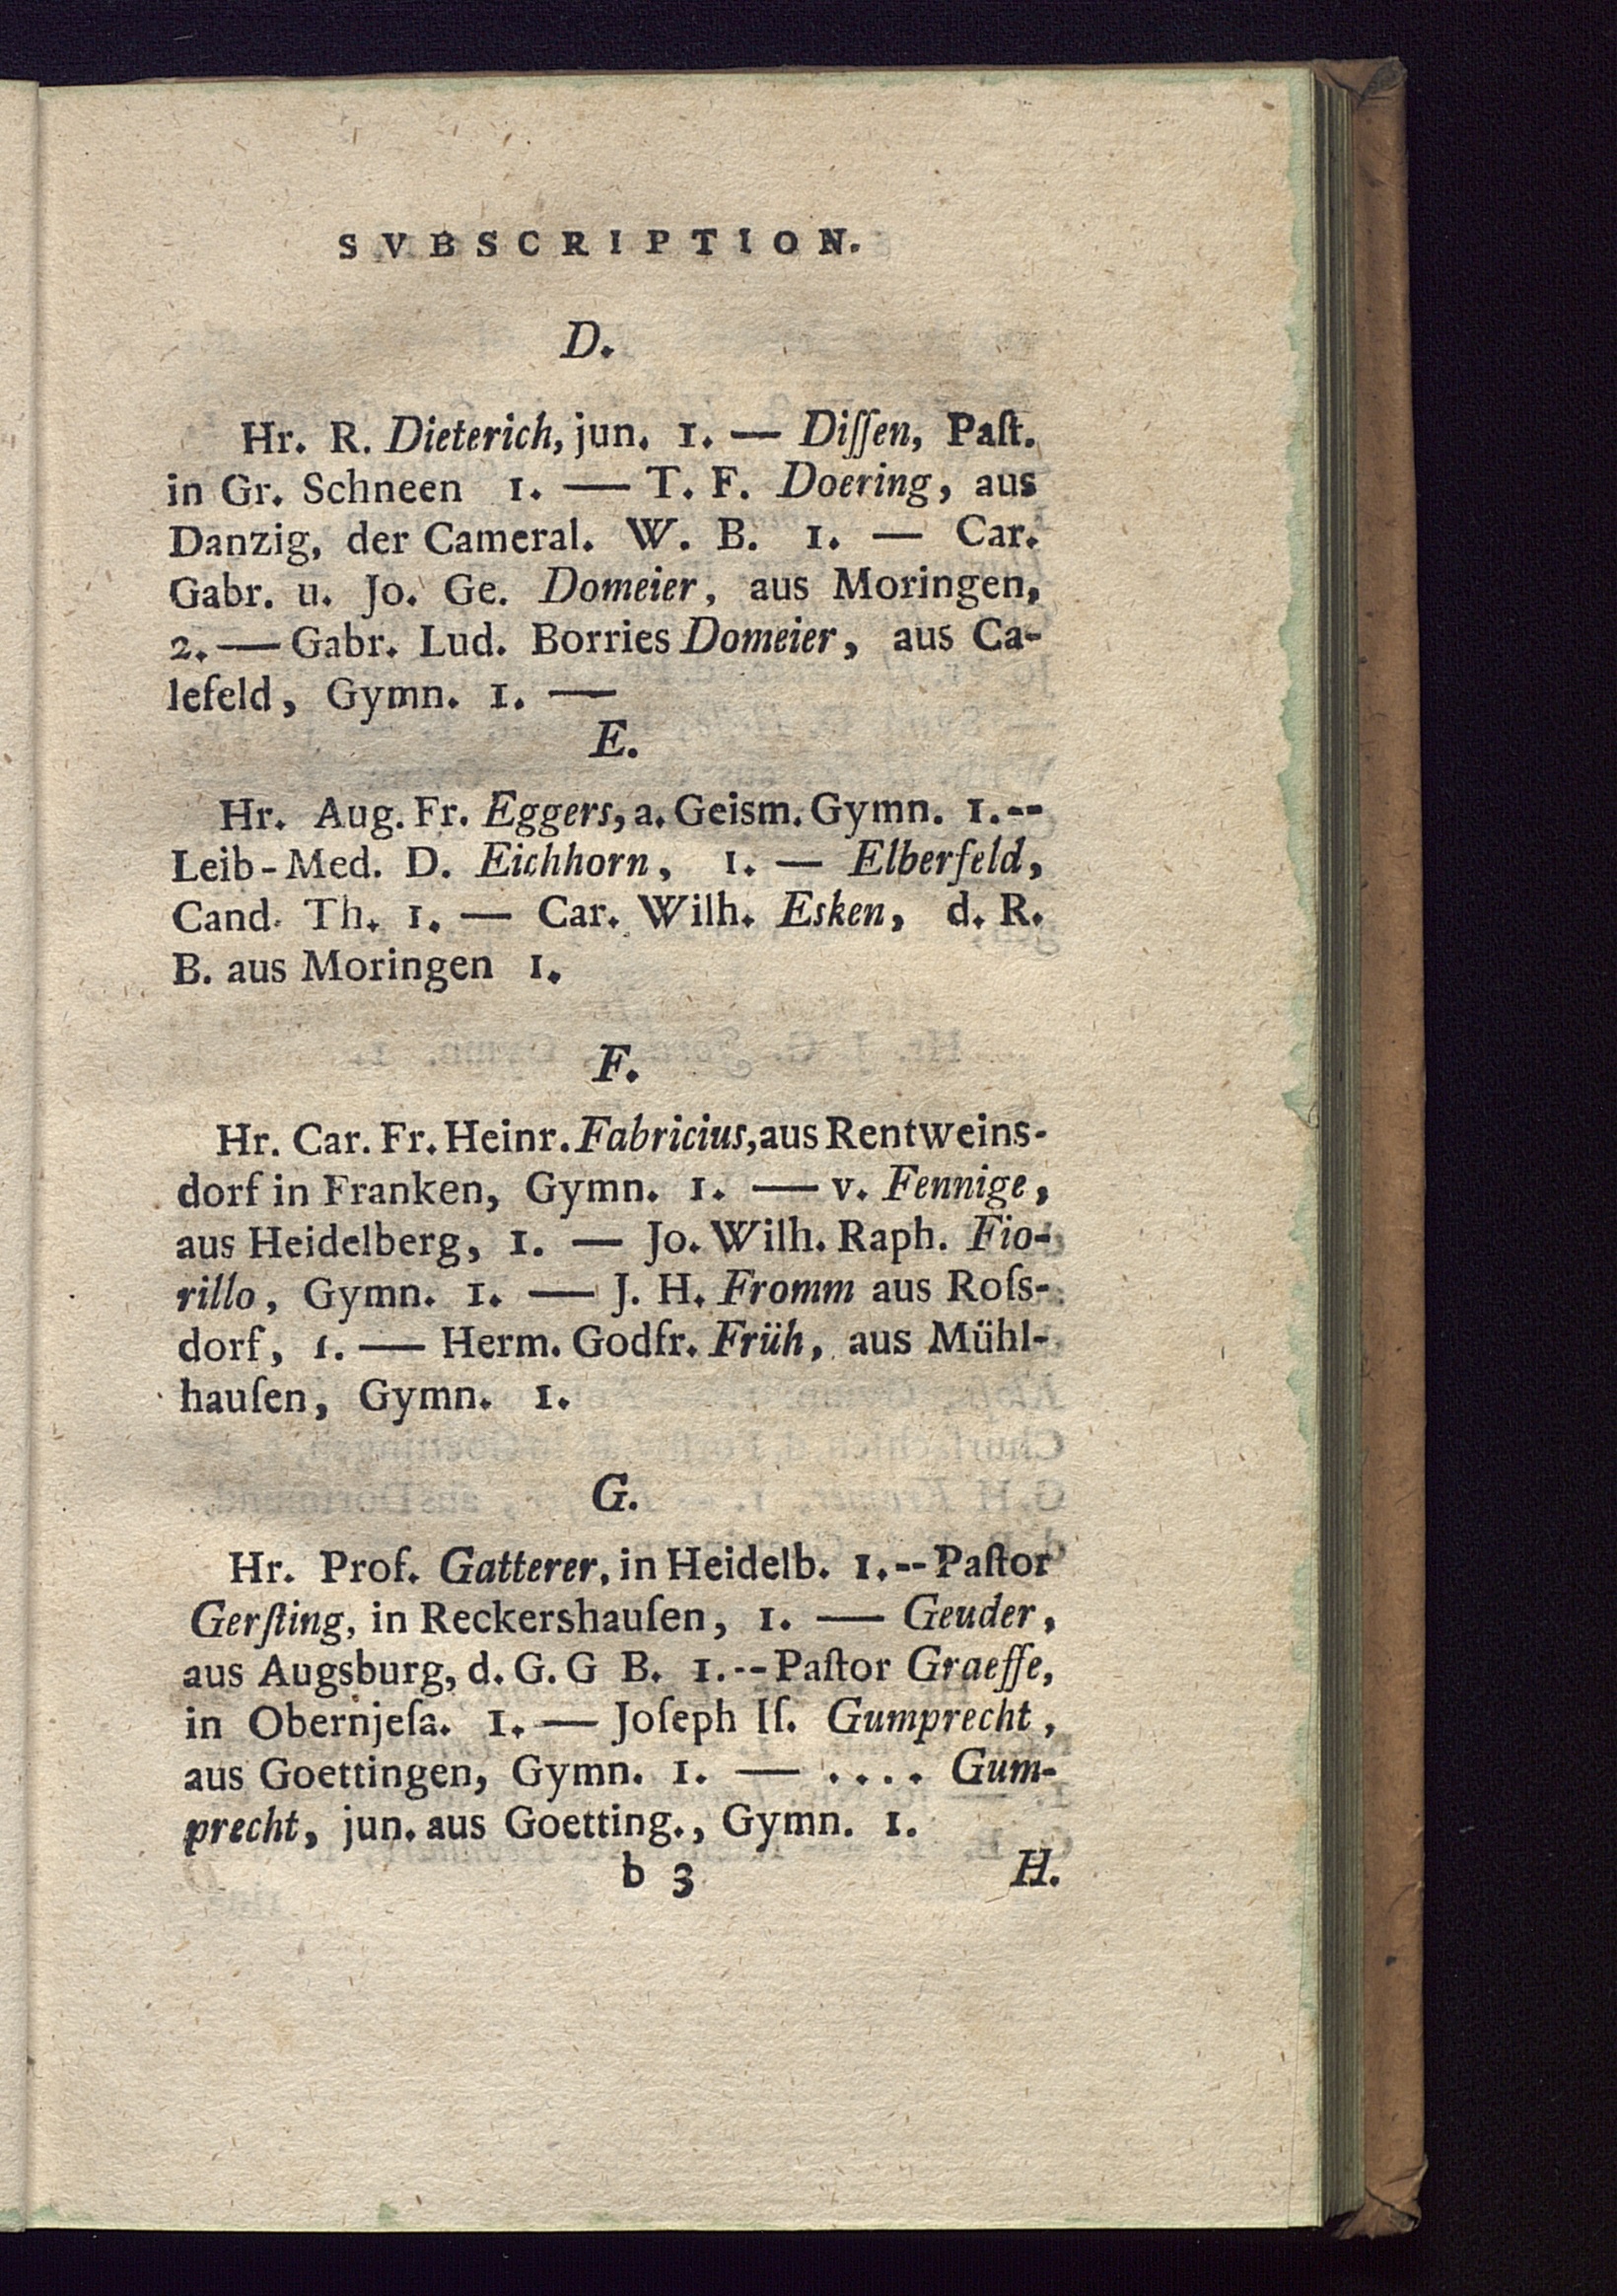 SVBSCRIPTION.
D.
Hr. R. Dieterich, jun. 1. — Diſſen, Paſt.
in Gr. Schneen 1. — T. F. Doering, aus
Danzig, der Cameral. W. B. 1. — Car.
Gabr. u. Jo. Ge. Domeier, aus Moringen,
2. — Gabr. Lud. Borries Domeier, aus Ca-
lefeld, Gymn. 1. —
E.
Hr. Aug. Fr. Eggers, a. Geism. Gymn. 1.--
Leib-Med. D. Eichhorn, 1. — Elberfeld,
Cand. Th. 1. — Car. Wilh. Esken, d. R.
B. aus Moringen 1.
F.
Hr. Car. Fr. Heinr. Fabricius, aus Rentweins-
dorf in Franken, Gymn. 1. — v. Fennige,
aus Heidelberg, 1. — Jo. Wilh. Raph. Fio-
rillo, Gymn. 1. — J. H. Fromm aus Roſs-
dorf, 1. — Herm. Godfr. Früh, aus Mühl-
hauſen, Gymn. 1.
G.
Hr. Prof. Gatterer, in Heidelb. 1.-- Paſtor
Gerſting, in Reckershauſen, 1. — Geuder,
aus Augsburg, d. G. G B. 1.-- Paſtor Graeffe,
in Obernjeſa. 1. — Joſeph Iſ. Gumprecht,
aus Goettingen, Gymn. 1. — .... Gum-
precht, jun. aus Goetting., Gymn. 1.
b 3 H.